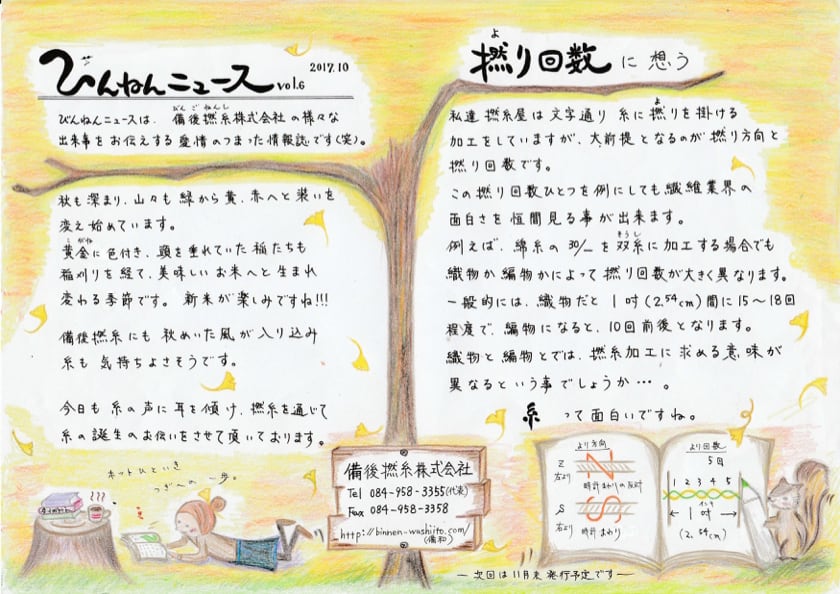 びんねんニュース vol.6 2017.10
びんねんニュースは、備後撚糸株式会社の様々な
出来事をお伝えする愛情のつまった情報誌です(笑)。
秋も深まり、山々も緑から黄、赤へと装いを
変え始めています。
黄金に色付き、頭を垂れていた稲たちも
稲刈りを経て、美味しいお米へと生まれ
変わる季節です。新米が楽しみですね!!!
備後撚糸にも秋めいた風が入り込み
糸も気持ちよさそうです。
今日も糸の声に耳を傾け、撚糸を通じて
糸の誕生のお伝いをさせて頂いております。
ホットひといき
つぎへの一歩。
撚り回数に想う
私達撚糸屋は文字通り糸に撚りを掛ける
加工をしていますが、大前提となるのが撚り方向と
撚り回数です。
この撚り回数ひとつを例にしても繊維業界の
面白さを恒間見る事が出来ます。
例えば、綿糸の30/-を双糸に加工する場合でも
織物か編物かによって撚り回数が大きく異なります。
一般的には、織物だと1吋(2.54cm)間に15〜18回
程度で、編物になると、10回前後となります。
織物と編物とでは、撚糸加工に求める意味が
異なるという事でしょうか…。
糸って面白いですね。
備後撚糸株式会社
Tel 084-958-3355(代表)
Fax 084-958-3358
http://binnen-washiito.com/
(備和)
より方向
Z
左より
時計まわりの反対
S
右より
時計まわり
より回数
5回
1 2 3 4 5
1吋
(2.54cm)
―次回は11月末発行予定です―